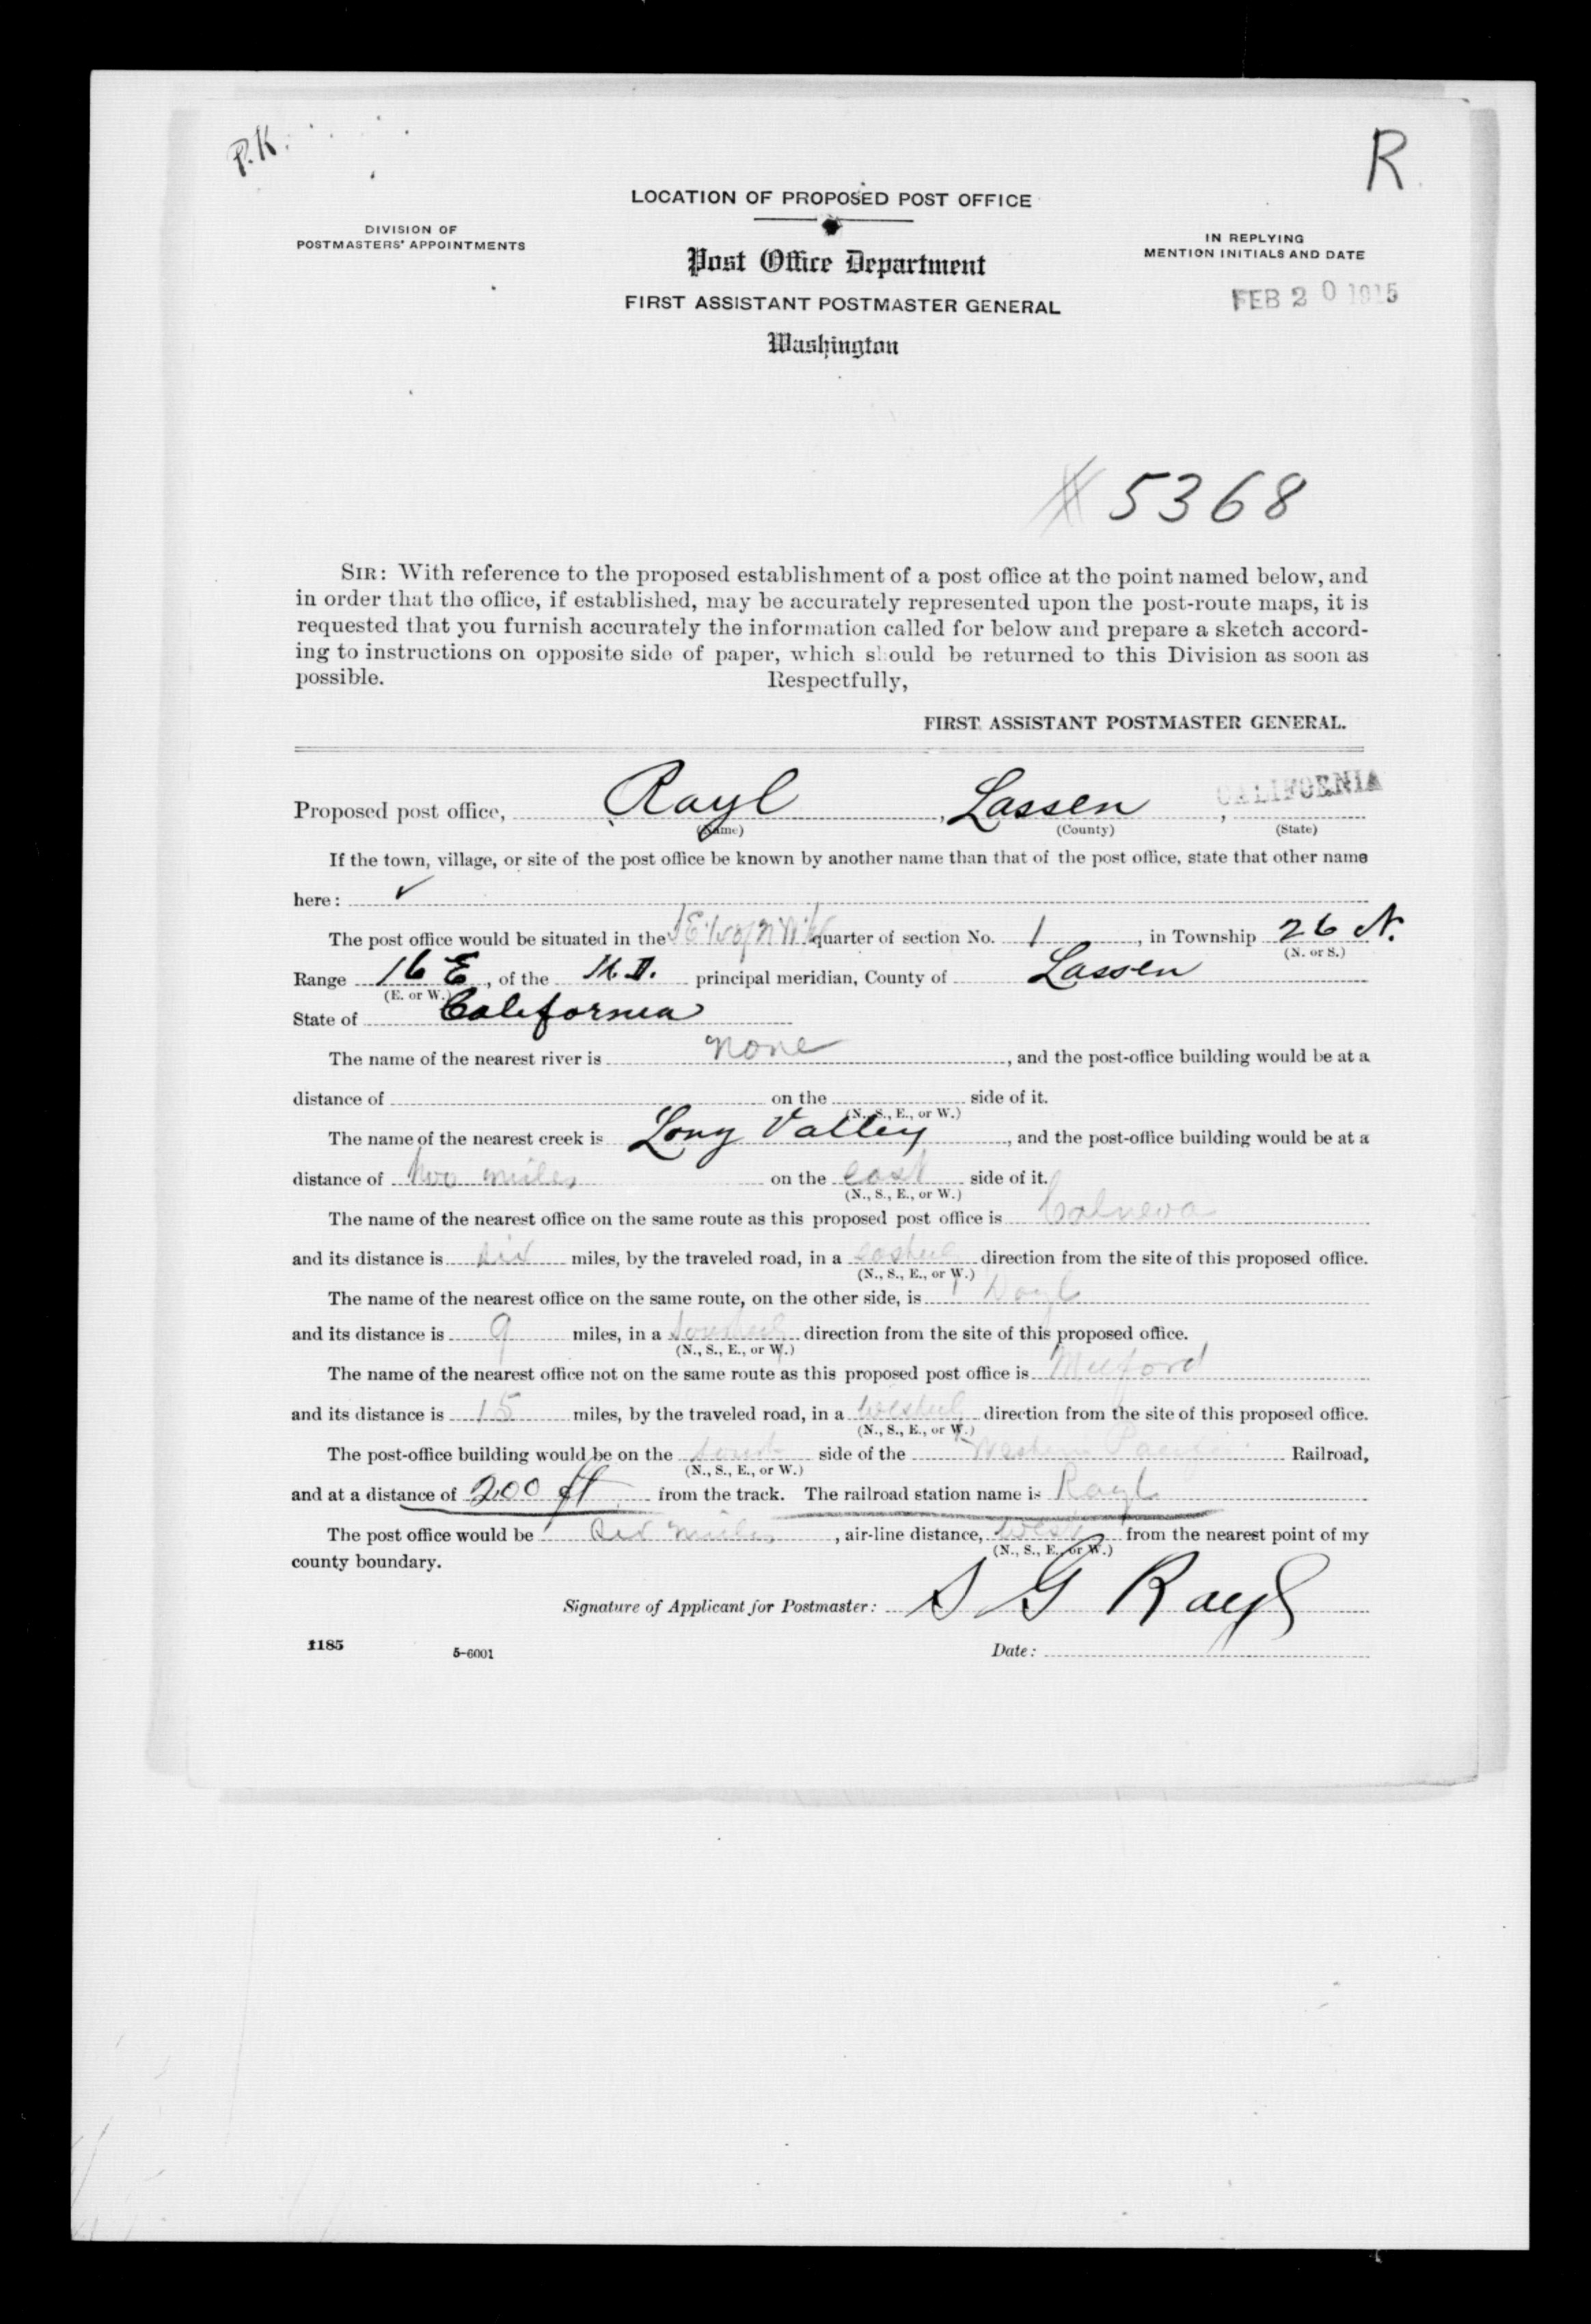 P.K.
R
LOCATION OF PROPOSED POST OFFICE
DIVISION OF
POSTMASTERS' APPOINTMENTS
Post Office Department
FIRST ASSISTANT POSTMASTER GENERAL
Washington
IN REPLYING
MENTION INITIALS AND DATE
FEB 20 1915
# 5368
SIR: With reference to the proposed establishment of a post office at the point named below, and
in order that the office, if established, may be accurately represented upon the post-route maps, it is
requested that you furnish accurately the information called for below and prepare a sketch accord-
ing to instructions on opposite side of paper, which should be returned to this Division as soon as
possible. Respectfully,
FIRST ASSISTANT POSTMASTER GENERAL.
Proposed post office, Rayl, Lassen, CALIFORNIA
(Name) (County) (State)
If the town, village, or site of the post office be known by another name than that of the post office, state that other name
here: ✓
The post office would be situated in the quarter of section No. 1, in Township 26 N.
(N. or S.)
Range 16 E, of the M.D. principal meridian, County of Lassen
(E. or W.)
State of California
The name of the nearest river is none, and the post-office building would be at a
distance of on the side of it.
(N., S., E., or W.)
The name of the nearest creek is Long Valley, and the post-office building would be at a
distance of two miles on the east side of it.
(N., S., E., or W.)
The name of the nearest office on the same route as this proposed post office is Calneva
and its distance is six miles, by the traveled road, in a direction from the site of this proposed office.
(N., S., E., or W.)
The name of the nearest office on the same route, on the other side, is Doyl
and its distance is 9 miles, in a direction from the site of this proposed office.
(N., S., E., or W.)
The name of the nearest office not on the same route as this proposed post office is Milford
and its distance is 15 miles, by the traveled road, in a direction from the site of this proposed office.
(N., S., E., or W.)
The post-office building would be on the south side of the Western Pacific Railroad,
(N., S., E., or W.)
and at a distance of 200 ft from the track. The railroad station name is Rayl
The post office would be six miles, air-line distance, west from the nearest point of my
(N., S., E., or W.)
county boundary.
Signature of Applicant for Postmaster: S G Rayl
1185 5-6001 Date: